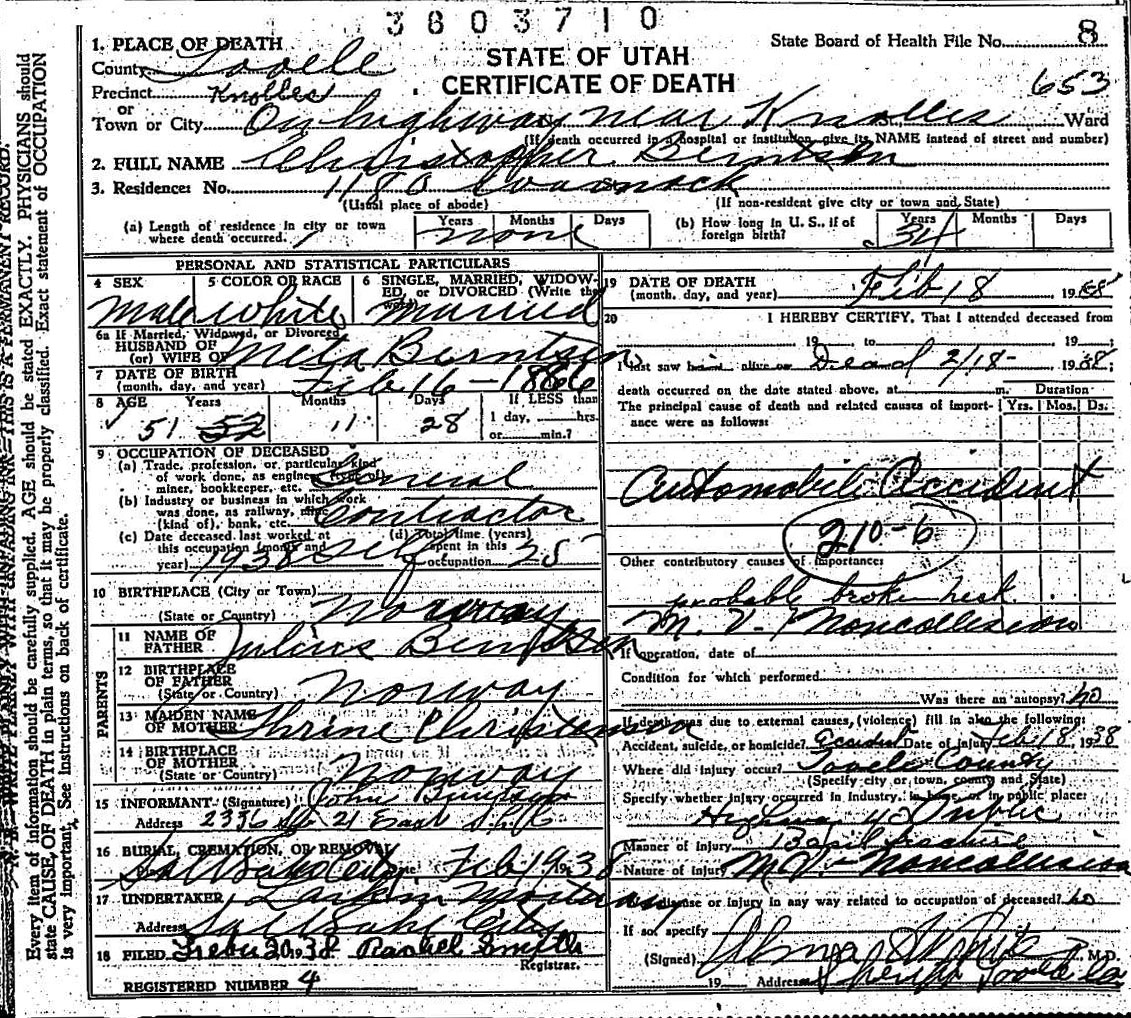 3803710
State Board of Health File No. 8
653
STATE OF UTAH
CERTIFICATE OF DEATH
1. PLACE OF DEATH
County Tooele
Precinct Knolles
or
Town or City On highway near Knolles Ward
(If death occurred in a hospital or institution, give its NAME instead of street and number)
2. FULL NAME Christopher Berntsen
3. Residence: No. 1180
(Usual place of abode) (If non-resident give city or town and State)
(a) Length of residence in city or town where death occurred. Years Months Days none
(b) How long in U. S., if of foreign birth? Years Months Days 34
PERSONAL AND STATISTICAL PARTICULARS
4 SEX Male
5 COLOR OR RACE white
6 SINGLE, MARRIED, WIDOWED, or DIVORCED (Write the word) married
6a If Married, Widowed, or Divorced
HUSBAND OF
(or) WIFE OF Meta Berntsen
7 DATE OF BIRTH
(month, day, and year) Feb 16 - 1886
8 AGE Years Months Days If LESS than
1 day, hrs.
or min.?
51 52 11 28
9 OCCUPATION OF DECEASED
(a) Trade, profession, or particular kind
of work done, as engineer,
miner, bookkeeper, etc. General
(b) Industry or business in which work
was done, as railway, mine
(kind of), bank, etc. Contractor
(c) Date deceased last worked at
this occupation (month and
year) 1938
(d) Total time (years)
spent in this
occupation 25
10 BIRTHPLACE (City or Town)
(State or Country) Norway
PARENTS
11 NAME OF
FATHER Julius Berntsen
12 BIRTHPLACE
OF FATHER
(State or Country) Norway
13 MAIDEN NAME
OF MOTHER Thrine Christenson
14 BIRTHPLACE
OF MOTHER
(State or Country) Norway
15 INFORMANT (Signature) John Berntsen
Address 2336 So 21 East S.L.C.
16 BURIAL, CREMATION, OR REMOVAL
Salt Lake City Feb 19 1938
17 UNDERTAKER Larkin Mortuary
Address Salt Lake City
18 FILED 20 1938 Rachel Smyth
Registrar.
REGISTERED NUMBER 4
19 DATE OF DEATH
(month, day, and year) Feb 18 1938
20 I HEREBY CERTIFY, That I attended deceased from
19 to 19 ;
I last saw him alive on Dead 2/18 - 1938;
death occurred on the date stated above, at m.
Duration
The principal cause of death and related causes of importance were as follows: Yrs. Mos. Ds.
Automobile Accident
210-6
Other contributory causes of importance:
probable broken neck
M. V. Noncollision
If operation, date of
Condition for which performed
Was there an autopsy? no
If death was due to external causes, (violence) fill in also the following:
Accident, suicide, or homicide? Accident Date of injury Feb 18, 1938
Where did injury occur? Tooele County
(Specify city or town, county and State)
Specify whether injury occurred in industry, in home, or in public place:
Highway Public
Manner of injury
Nature of injury M.V. - Noncollision
Was disease or injury in any way related to occupation of deceased? no
If so, specify
(Signed) Alma M.D.
19 Address Sheriff Tooele Co
Every item of information should be carefully supplied. AGE should be stated EXACTLY. PHYSICIANS should
state CAUSE OF DEATH in plain terms, so that it may be properly classified. Exact statement of OCCUPATION
is very important. See Instructions on back of certificate.